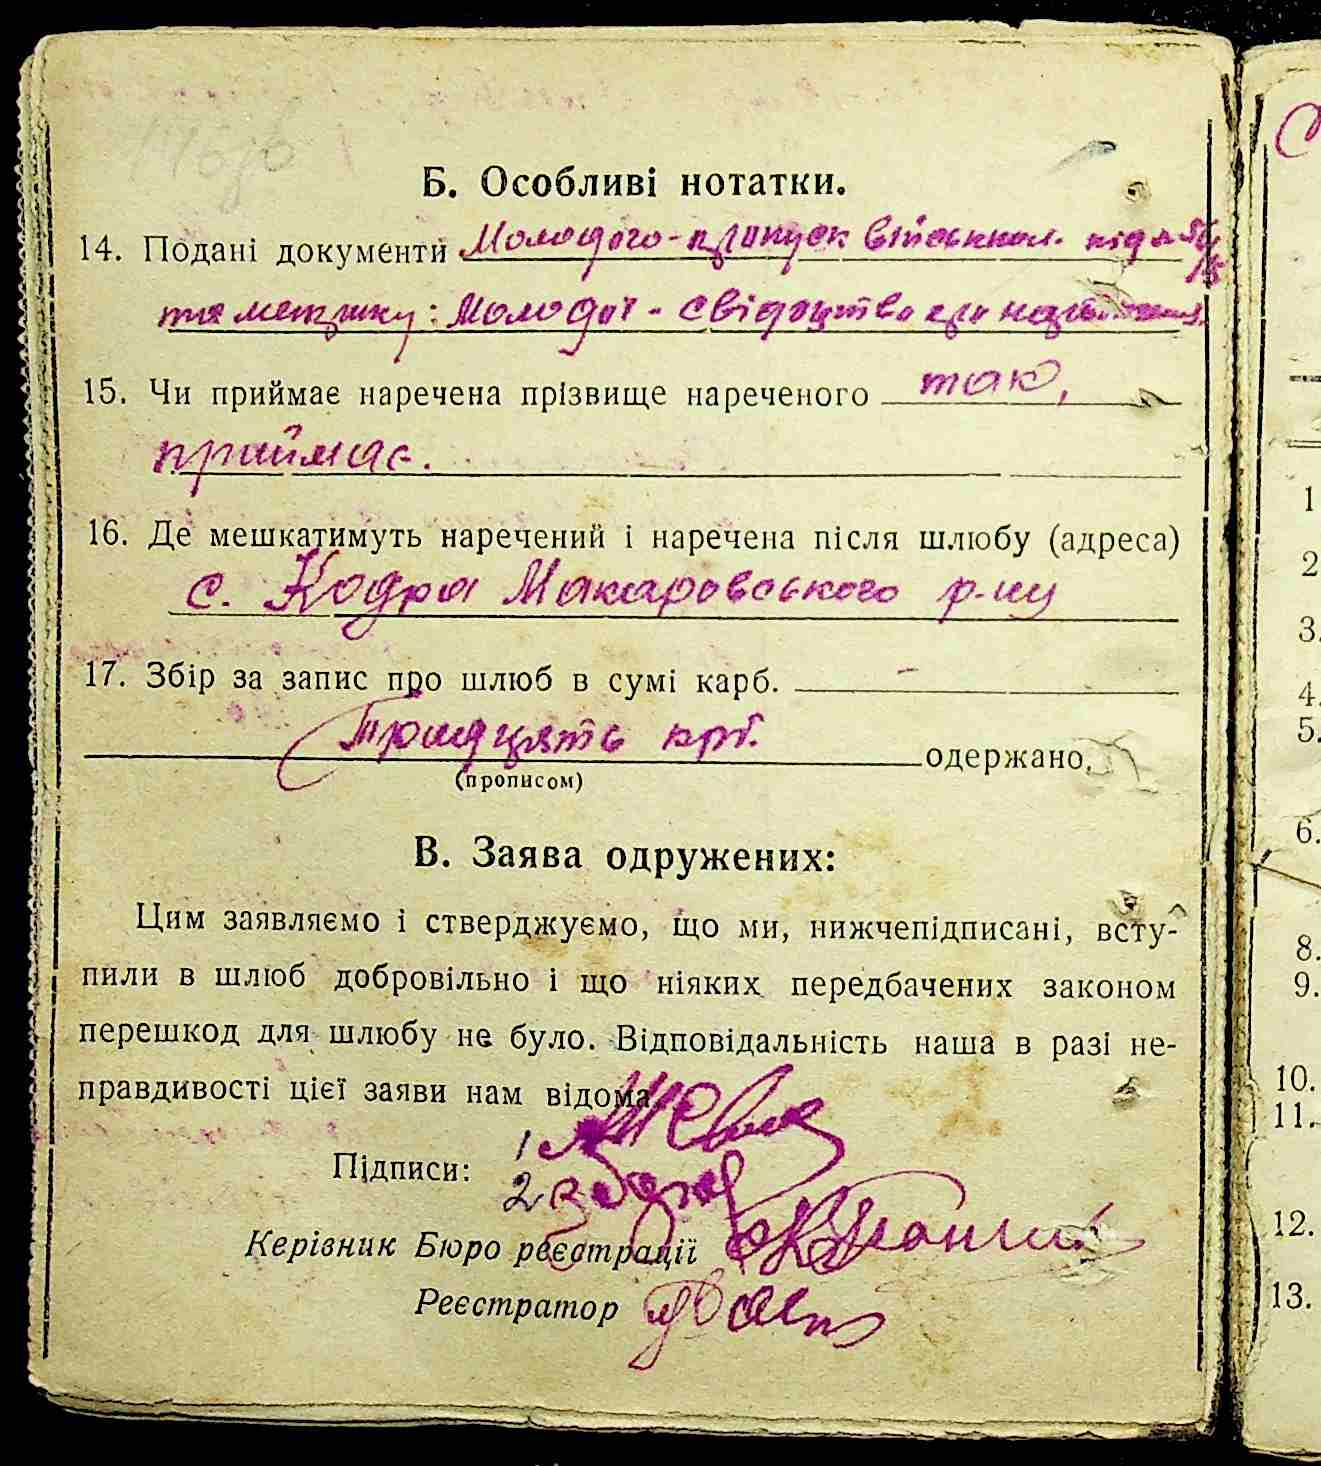 Б. Особливі нотатки.
14. Подані документи Молодого-пропуск військком.
та метрику: Молодої - свідоцтво про
15. Чи приймає наречена прізвище нареченого так,
приймає.
16. Де мешкатимуть наречений і наречена після шлюбу (адреса)
с. Кодра Макаровського р-ну
17. Збір за запис про шлюб в сумі карб. -
Тридцять крб. одержано.
(прописом)
В. Заява одружених:
Цим заявляємо і стверджуємо, що ми, нижчепідписані, всту-
пили в шлюб добровільно і що ніяких передбачених законом
перешкод для шлюбу не було. Відповідальність наша в разі не-
правдивості цієї заяви нам відома.
Підписи: 1
2
Керівник Бюро реєстрації
Реєстратор
1
2
3.
4.
5.
6.
8.
9.
10.
11.
12.
13.